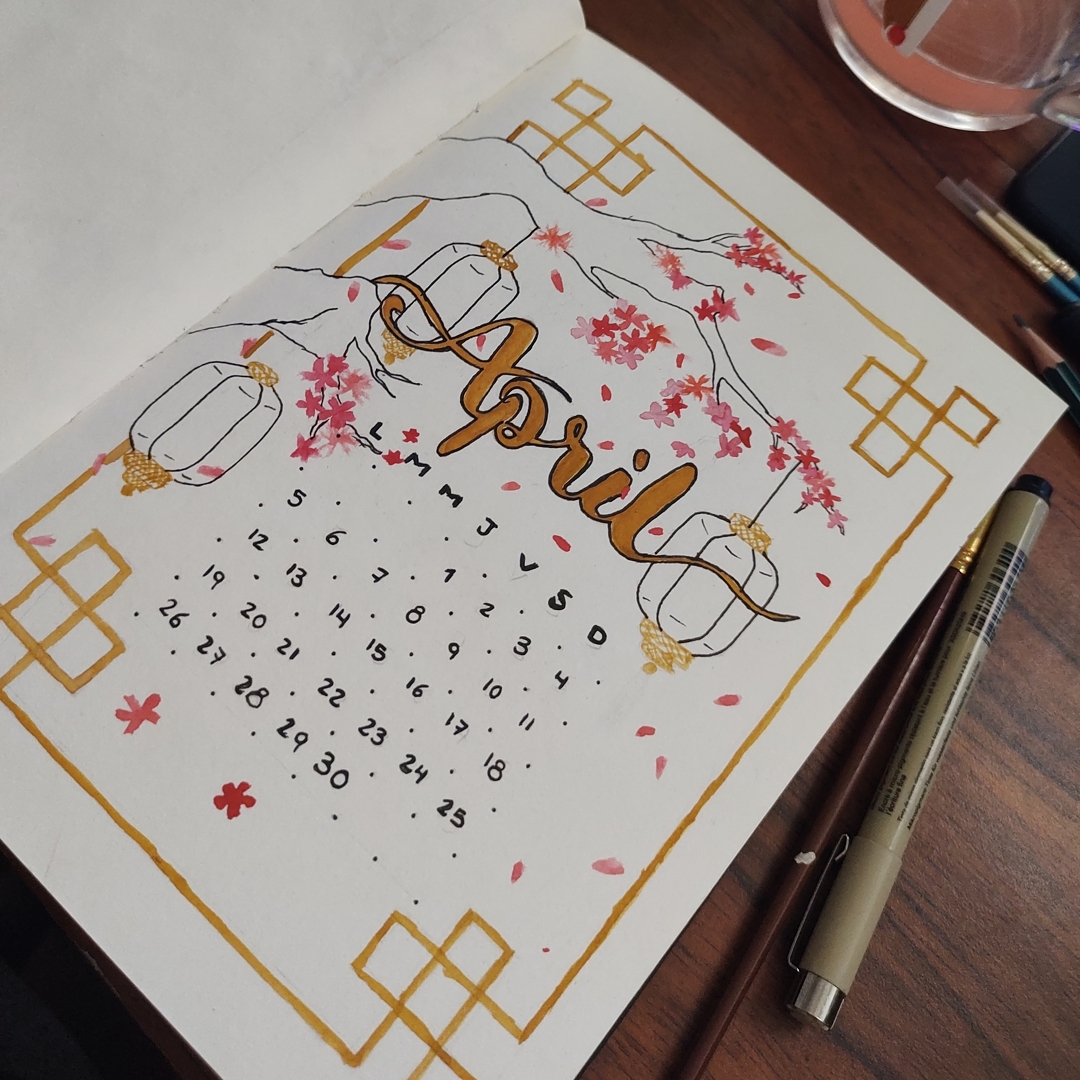 April
L M M J V S D
1 2 3 4
5 6 7 8 9 10 11
12 13 14 15 16 17 18
19 20 21 22 23 24 25
26 27 28 29 30